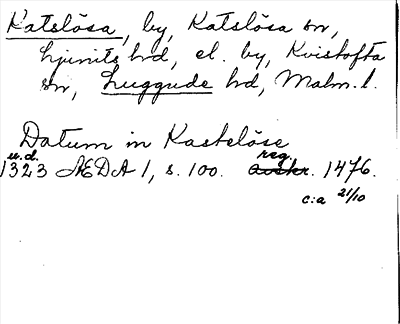 Katslösa, by, Katslösa sn,
Ljunits hd, el. by, Kvistofta
sn, Luggude hd, Malm. l.
Datum in Kastelöse
u.d. reg.
1323 ÆDA 1, s. 100. avskr. 1476.
c:a 21/10